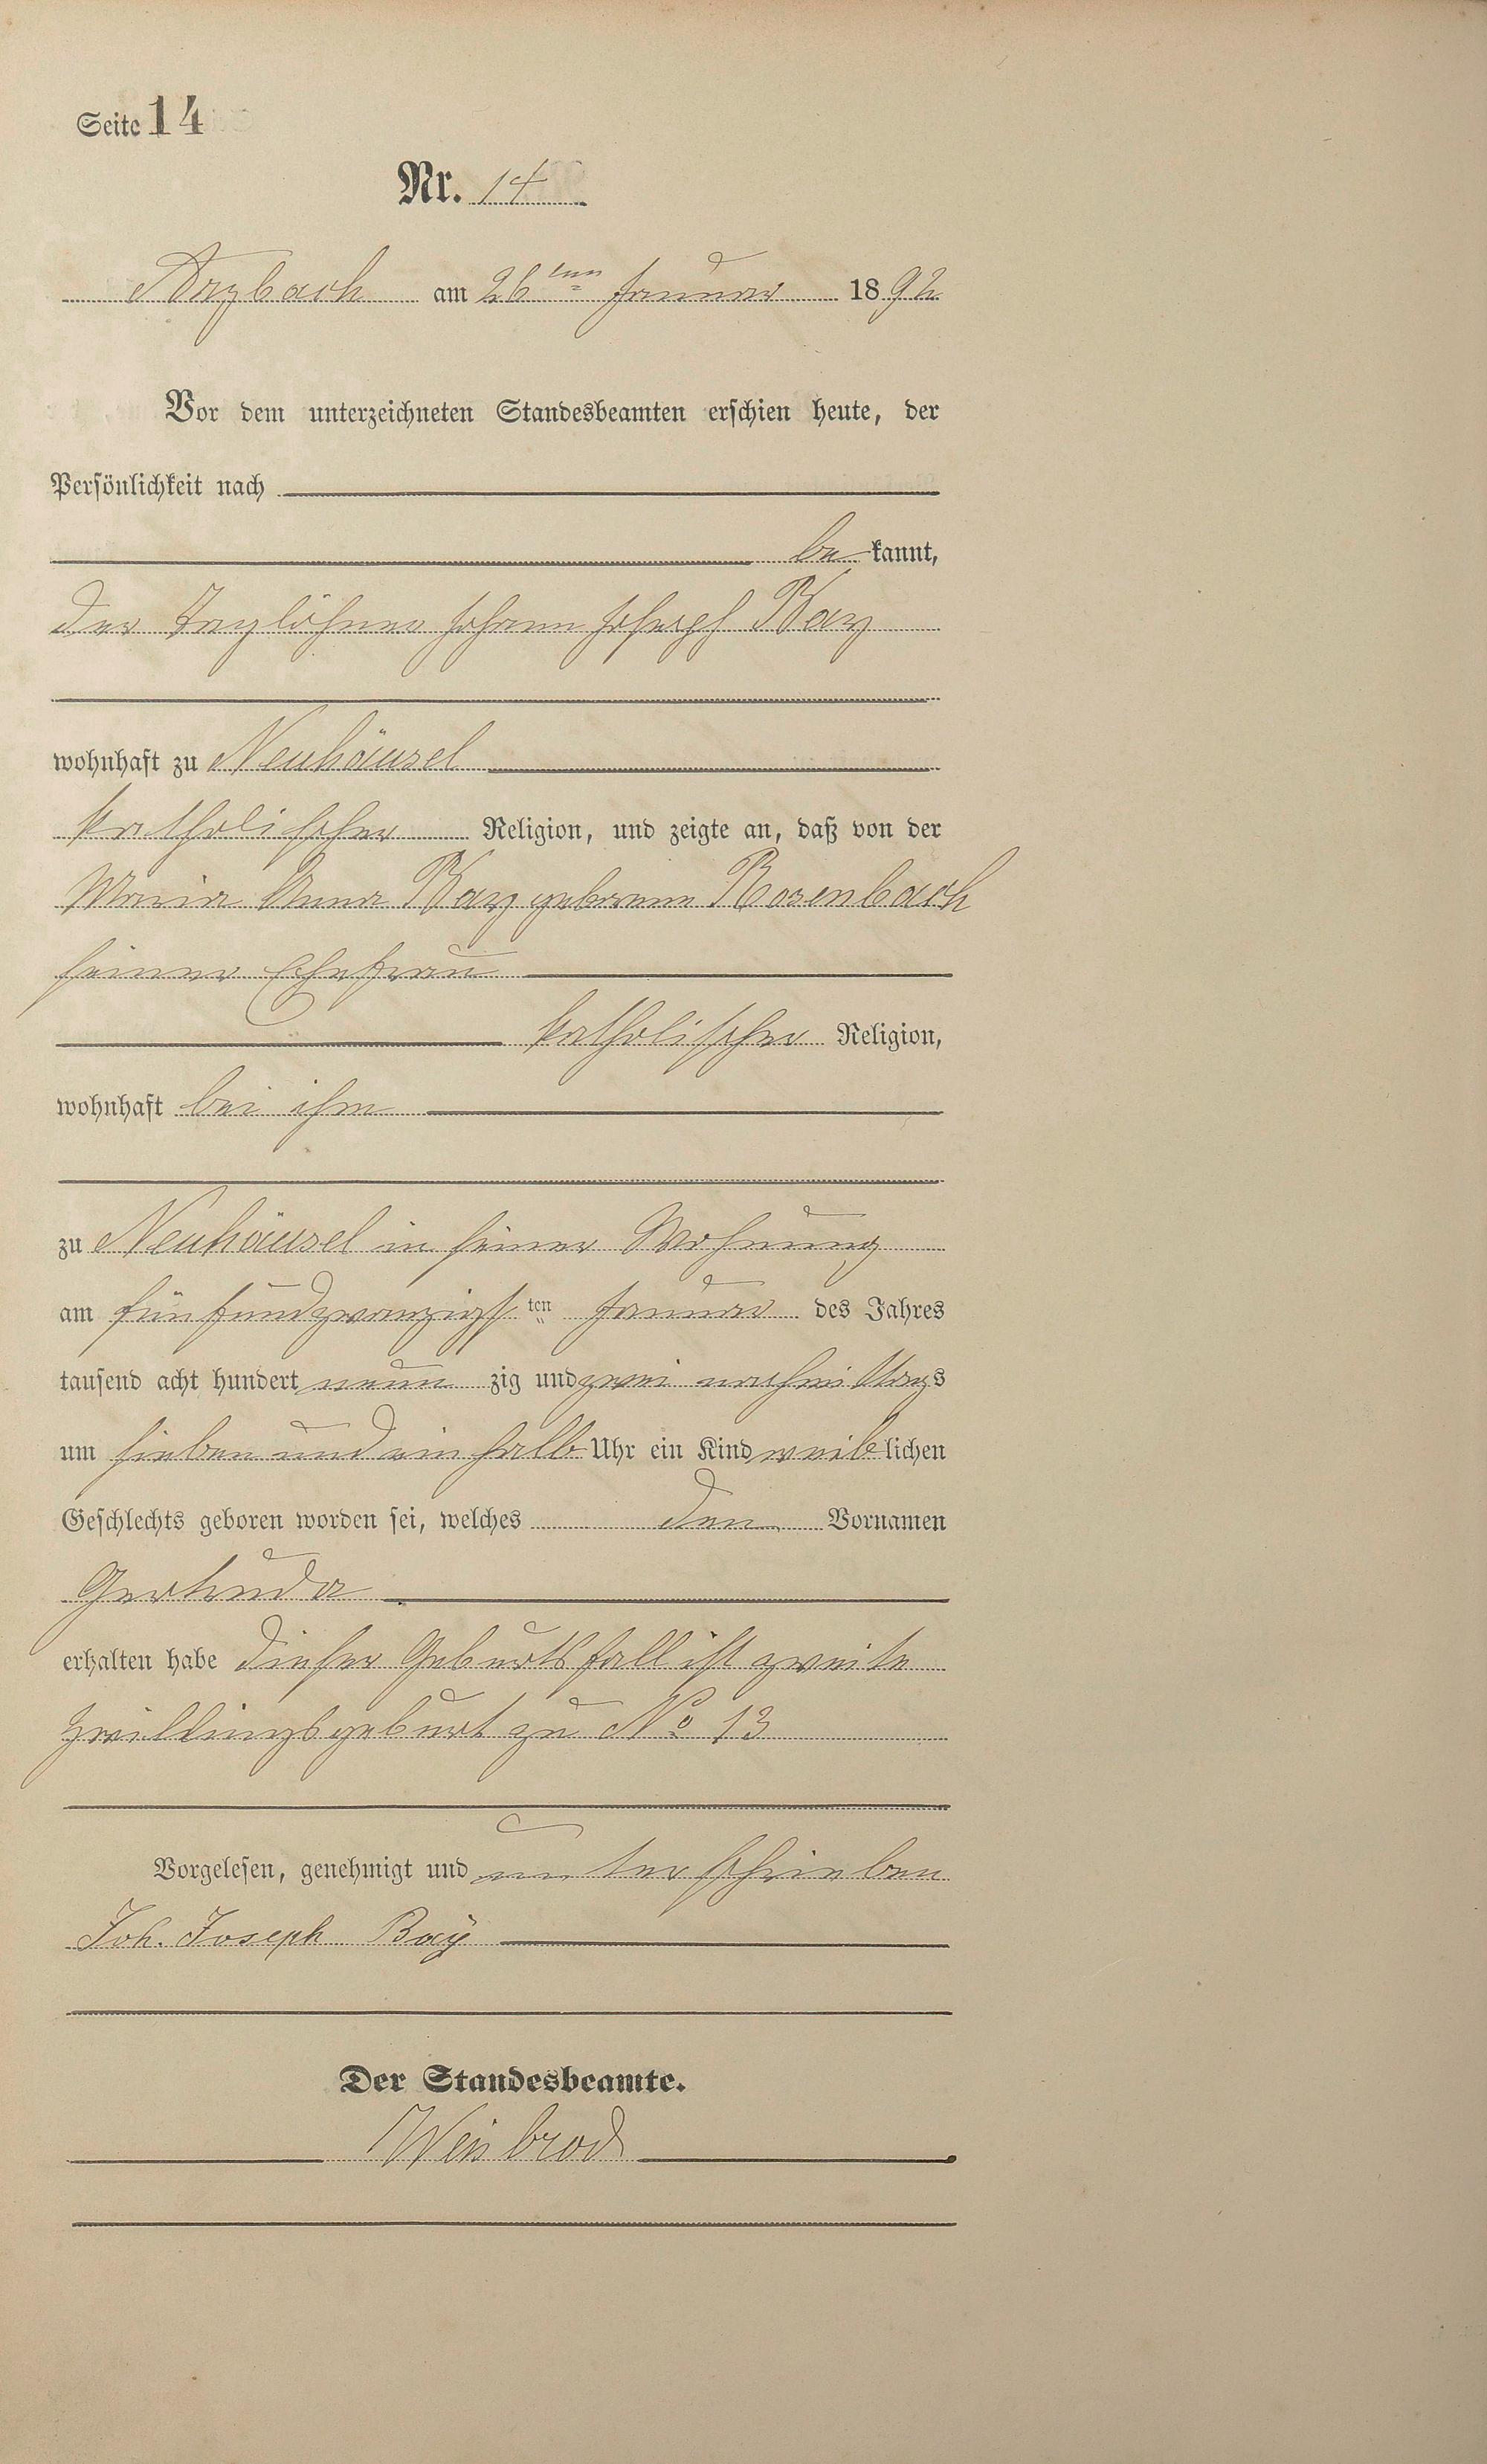 Seite 14
Nr. 14
Arzbach am 26ten Januar 1892
Vor dem unterzeichneten Standesbeamten erschien heute, der
Persönlichkeit nach
be kannt,
der Taglöhner Johann Joseph Bay
wohnhaft zu Neuhäusel
katholischer Religion, und zeigte an, daß von der
Maria Anna Bay geborene Rosenbach
seiner Ehefrau
katholischer Religion,
wohnhaft bei ihm
zu Neuhäusel in seiner Wohnung
am fünfundzwanzigsten Januar des Jahres
tausend acht hundert neun zig und zwei nachmittags
um sieben und ein halb Uhr ein Kind weiblichen
Geschlechts geboren worden sei, welches den Vornamen
Gertruda
erhalten habe dieser Geburtsfall ist zweite
Zwillingsgeburt zu No 13
Vorgelesen, genehmigt und unterschrieben
Joh. Joseph Baÿ
Der Standesbeamte.
Weisbrod